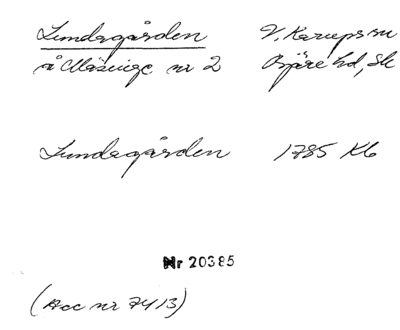 Lundagården V. Karups sn
å Äläsinge nr 2 Bjäre hd, Sk
Lundagården 1785 Kb
Nr 20385
(Acc nr 7413)